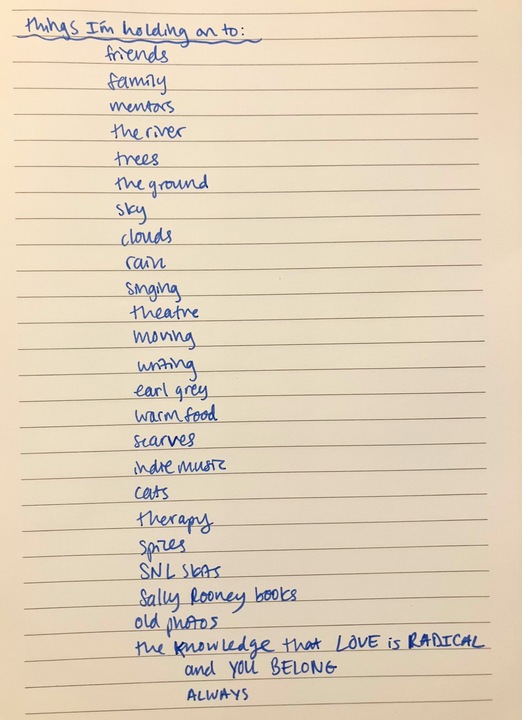 things I'm holding on to:
friends
family
mentors
the river
trees
the ground
sky
clouds
rain
singing
theatre
moving
writing
earl grey
warm food
scarves
indie music
cats
therapy
spices
SNL skits
Sally Rooney books
old photos
the knowledge that LOVE is RADICAL
and YOU BELONG
ALWAYS